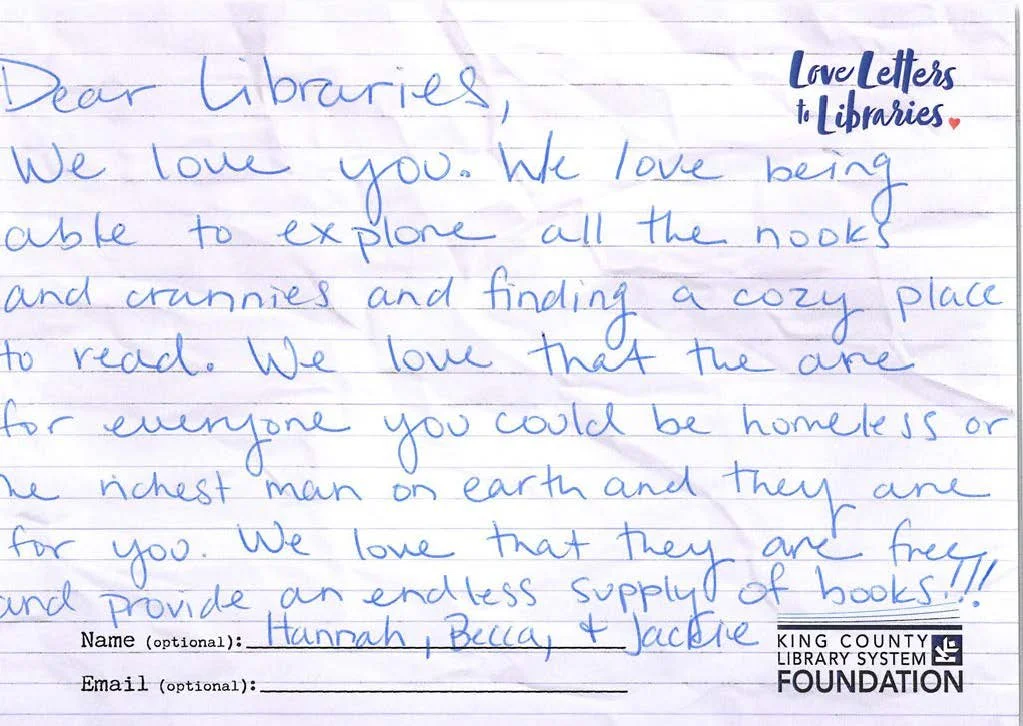 Love Letters
to Libraries
Dear Libraries,
We love you. We love being
able to explore all the nooks
and crannies and finding a cozy place
to read. We love that the are
for everyone you could be homeless or
he richest man on earth and they are
for you. We love that they are free
and provide an endless supply of books!!!
Name (optional): Hannah, Becca, + Jackie
Email (optional):
KING COUNTY
LIBRARY SYSTEM
FOUNDATION